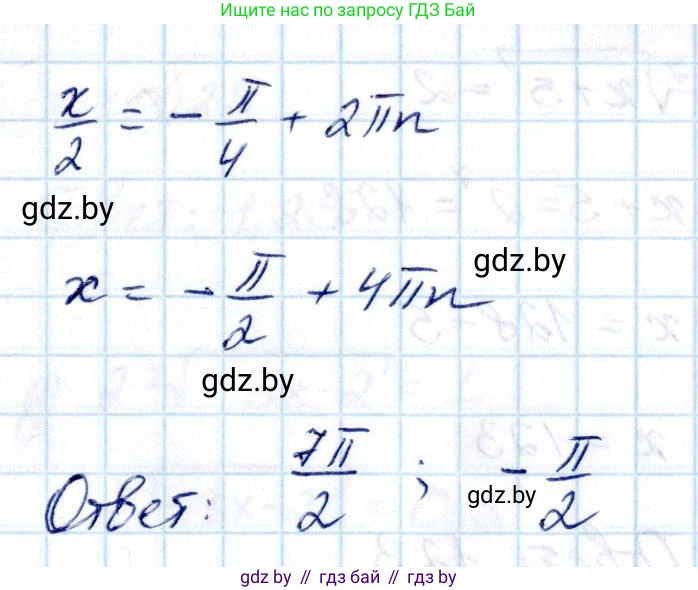 Ищите нас по запросу ГДЗ Бай
x/2 = -π/4 + 2πn
gdz.by
x = -π/2 + 4πn
gdz.by
gdz.by
Ответ: 7π/2 ; -π/2
gdz.by
gdz.by // гдз бай // гдз.by